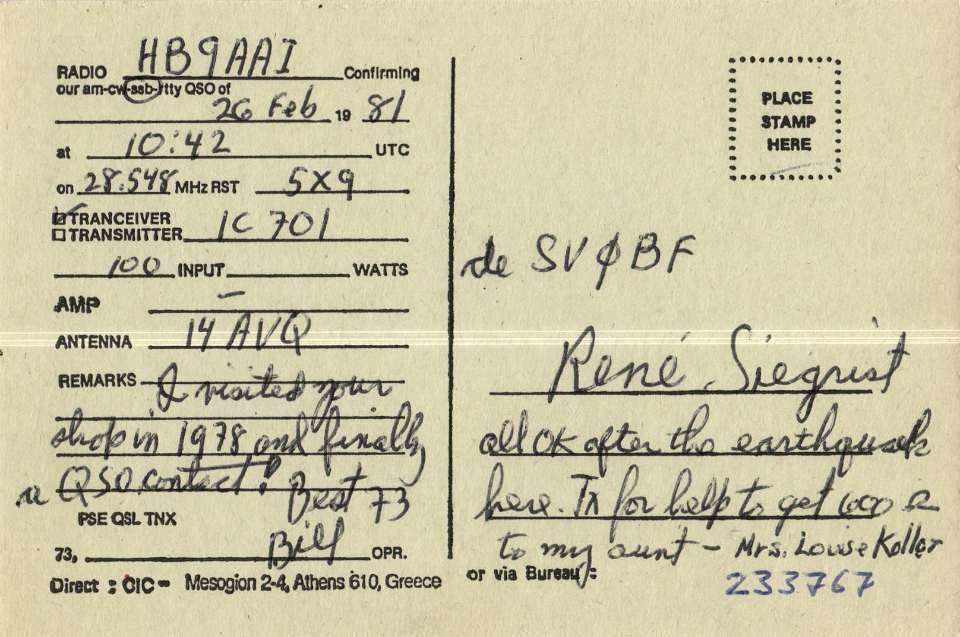 RADIO HB9AAI Confirming
our am-cw-ssb-rtty QSO of
26 Feb 1981
at 10:42 UTC
on 28.548 MHz RST 5X9
TRANCEIVER
TRANSMITTER IC 701
100 INPUT WATTS
AMP –
ANTENNA 14 AVQ
REMARKS I visited your
shop in 1978 and finally
a QSO contact! Best 73
PSE QSL TNX
73, Bill OPR.
Direct : CIC - Mesogion 2-4, Athens 610, Greece
PLACE
STAMP
HERE
de SVØBF
René Siegrist
all OK after the earthquake
here. Tx for help to get
to my aunt – Mrs. Louise Koller
or via Bureau :
233767